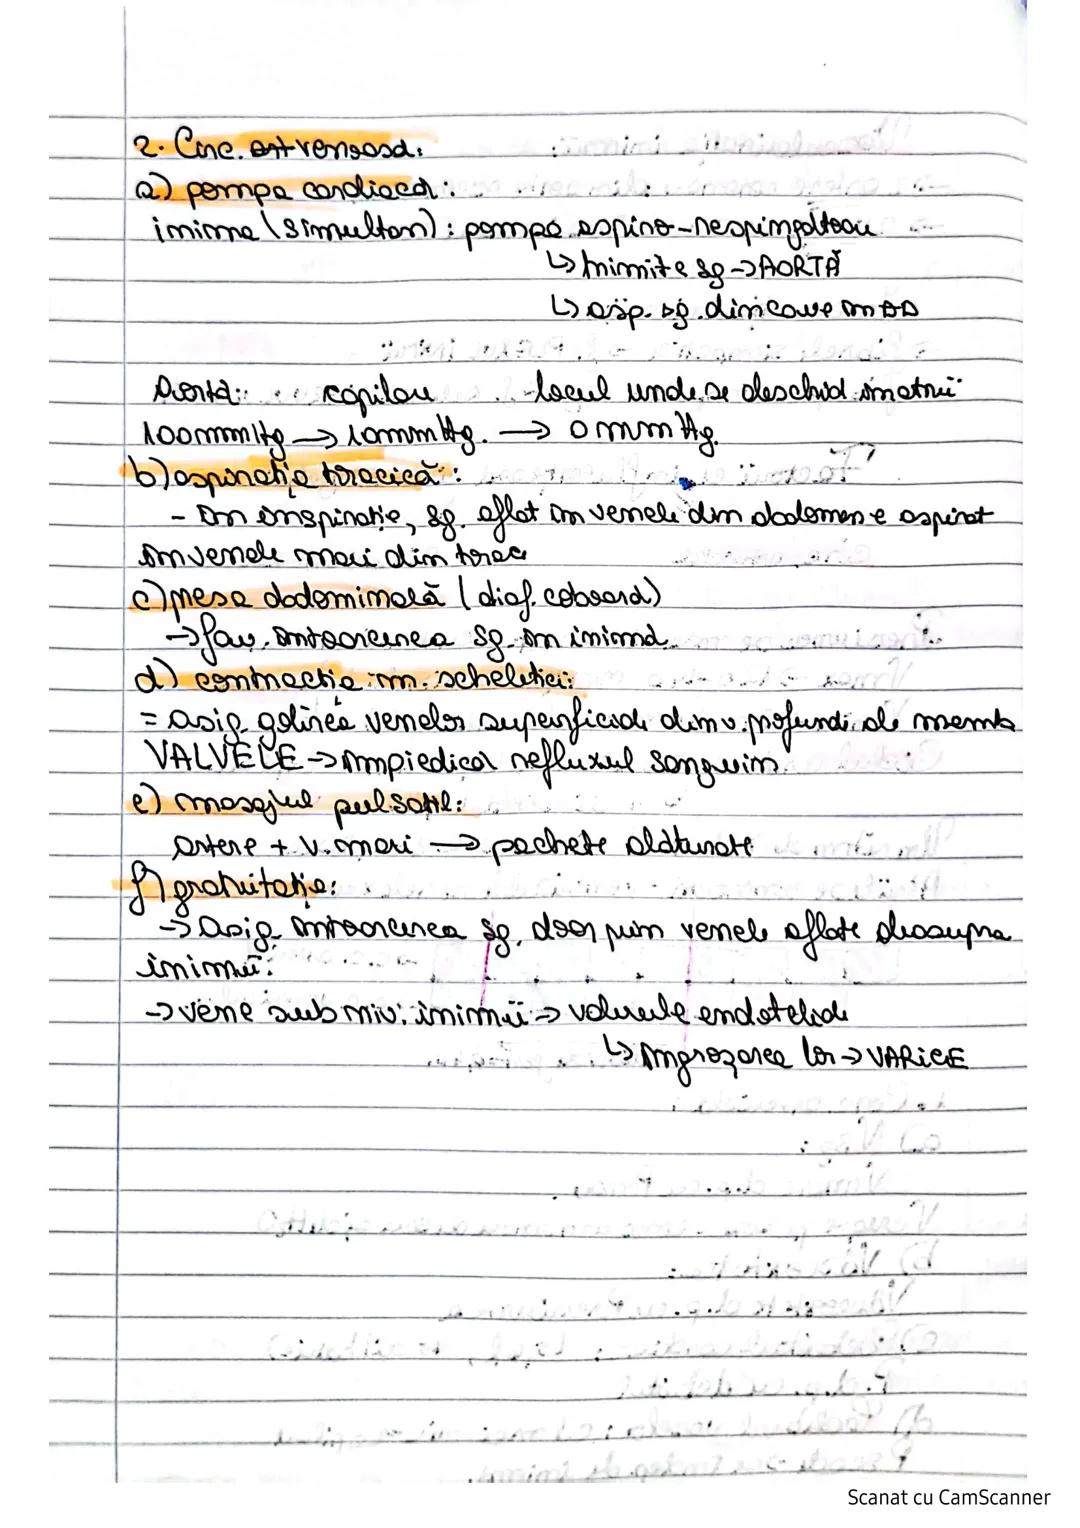 2. Circ. venoasă:
a) pompa cardiacă:
inima (simultan): pompă aspiro-respingătoare
↳ trimite sg → AORTĂ
↳ asp. sg. din cave în AD
Aorta: capilare locul unde se deschid în atrii
100mmHg → 10mmHg. → 0 mmHg.
b) aspirația toracică:
- în inspirație, sg. aflat în venele din abdomen e aspirat
în venele mari din torace
c) presa abdominală (diaf. coboară)
→ fav. întoarcerea sg. în inimă
d) contracția m. scheletici:
= asig. golirea venelor superficiale dim v. profunde ale memb
VALVELE → împiedică refluxul sanguin.
e) masajul pulsatil:
artere + v. mari → pachete alăturate
f) gravitația:
→ asig. întoarcerea sg. doar prin venele aflate deasupra
inimii.
→ vene sub niv. inimii → valvule endoteliale
↳ îngroșarea lor → VARICE
Scanat cu CamScanner